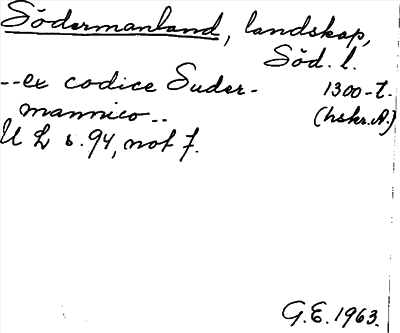 Södermanland, landskap,
Söd. l.
--ex codice Suder- 1300-t.
mannico-- (hskr. A.)
U L s. 94, not 7.
G.E. 1963.